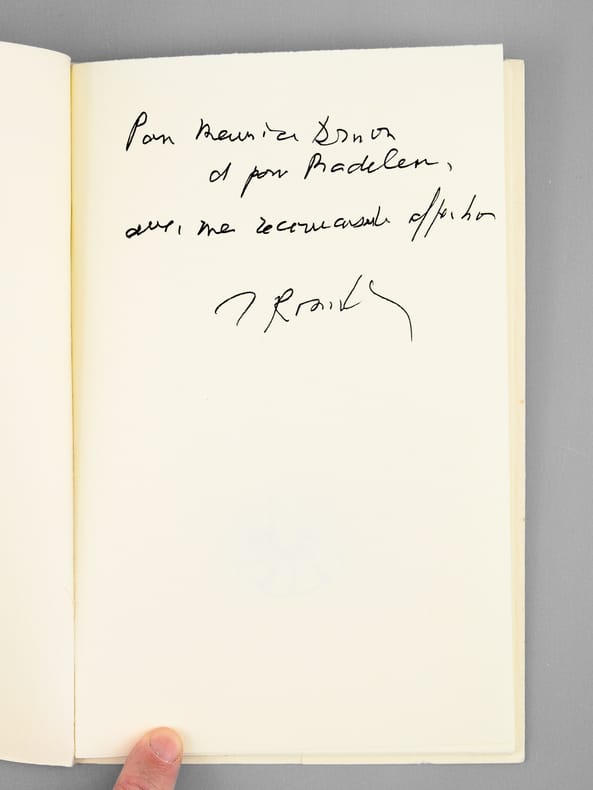 Pour Maurice Druon
et pour Madeleine,
avec ma reconnaissante affection